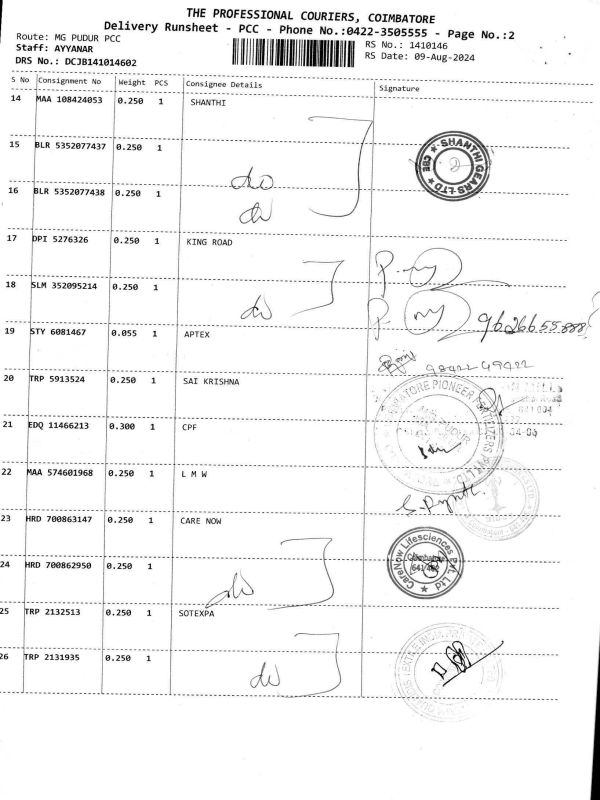 THE PROFESSIONAL COURIERS, COIMBATORE
Delivery Runsheet - PCC - Phone No.:0422-3505555 - Page No.:2
Route: MG PUDUR PCC
RS No.: 1410146
Staff: AYYANAR
RS Date: 09-Aug-2024
DRS No.: DCJB141014602
S No Consignment No Weight PCS Consignee Details Signature
14 MAA 108424053 0.250 1 SHANTHI
15 BLR 5352077437 0.250 1
SHANTHI GEARS LTD CBE
do
16 BLR 5352077438 0.250 1
do
17 DPI 5276326 0.250 1 KING ROAD
18 SLM 352095214 0.250 1
do
9626655888
19 STY 6081467 0.055 1 APTEX
98422 49422
20 TRP 5913524 0.250 1 SAI KRISHNA
641 004
21 EDQ 11466213 0.300 1 CPF
22 MAA 574601968 0.250 1 L M W
23 HRD 700863147 0.250 1 CARE NOW
CareNow Lifesciences Pvt. Ltd
Coimbatore
24 HRD 700862950 0.250 1
do
25 TRP 2132513 0.250 1 SOTEXPA
26 TRP 2131935 0.250 1
do